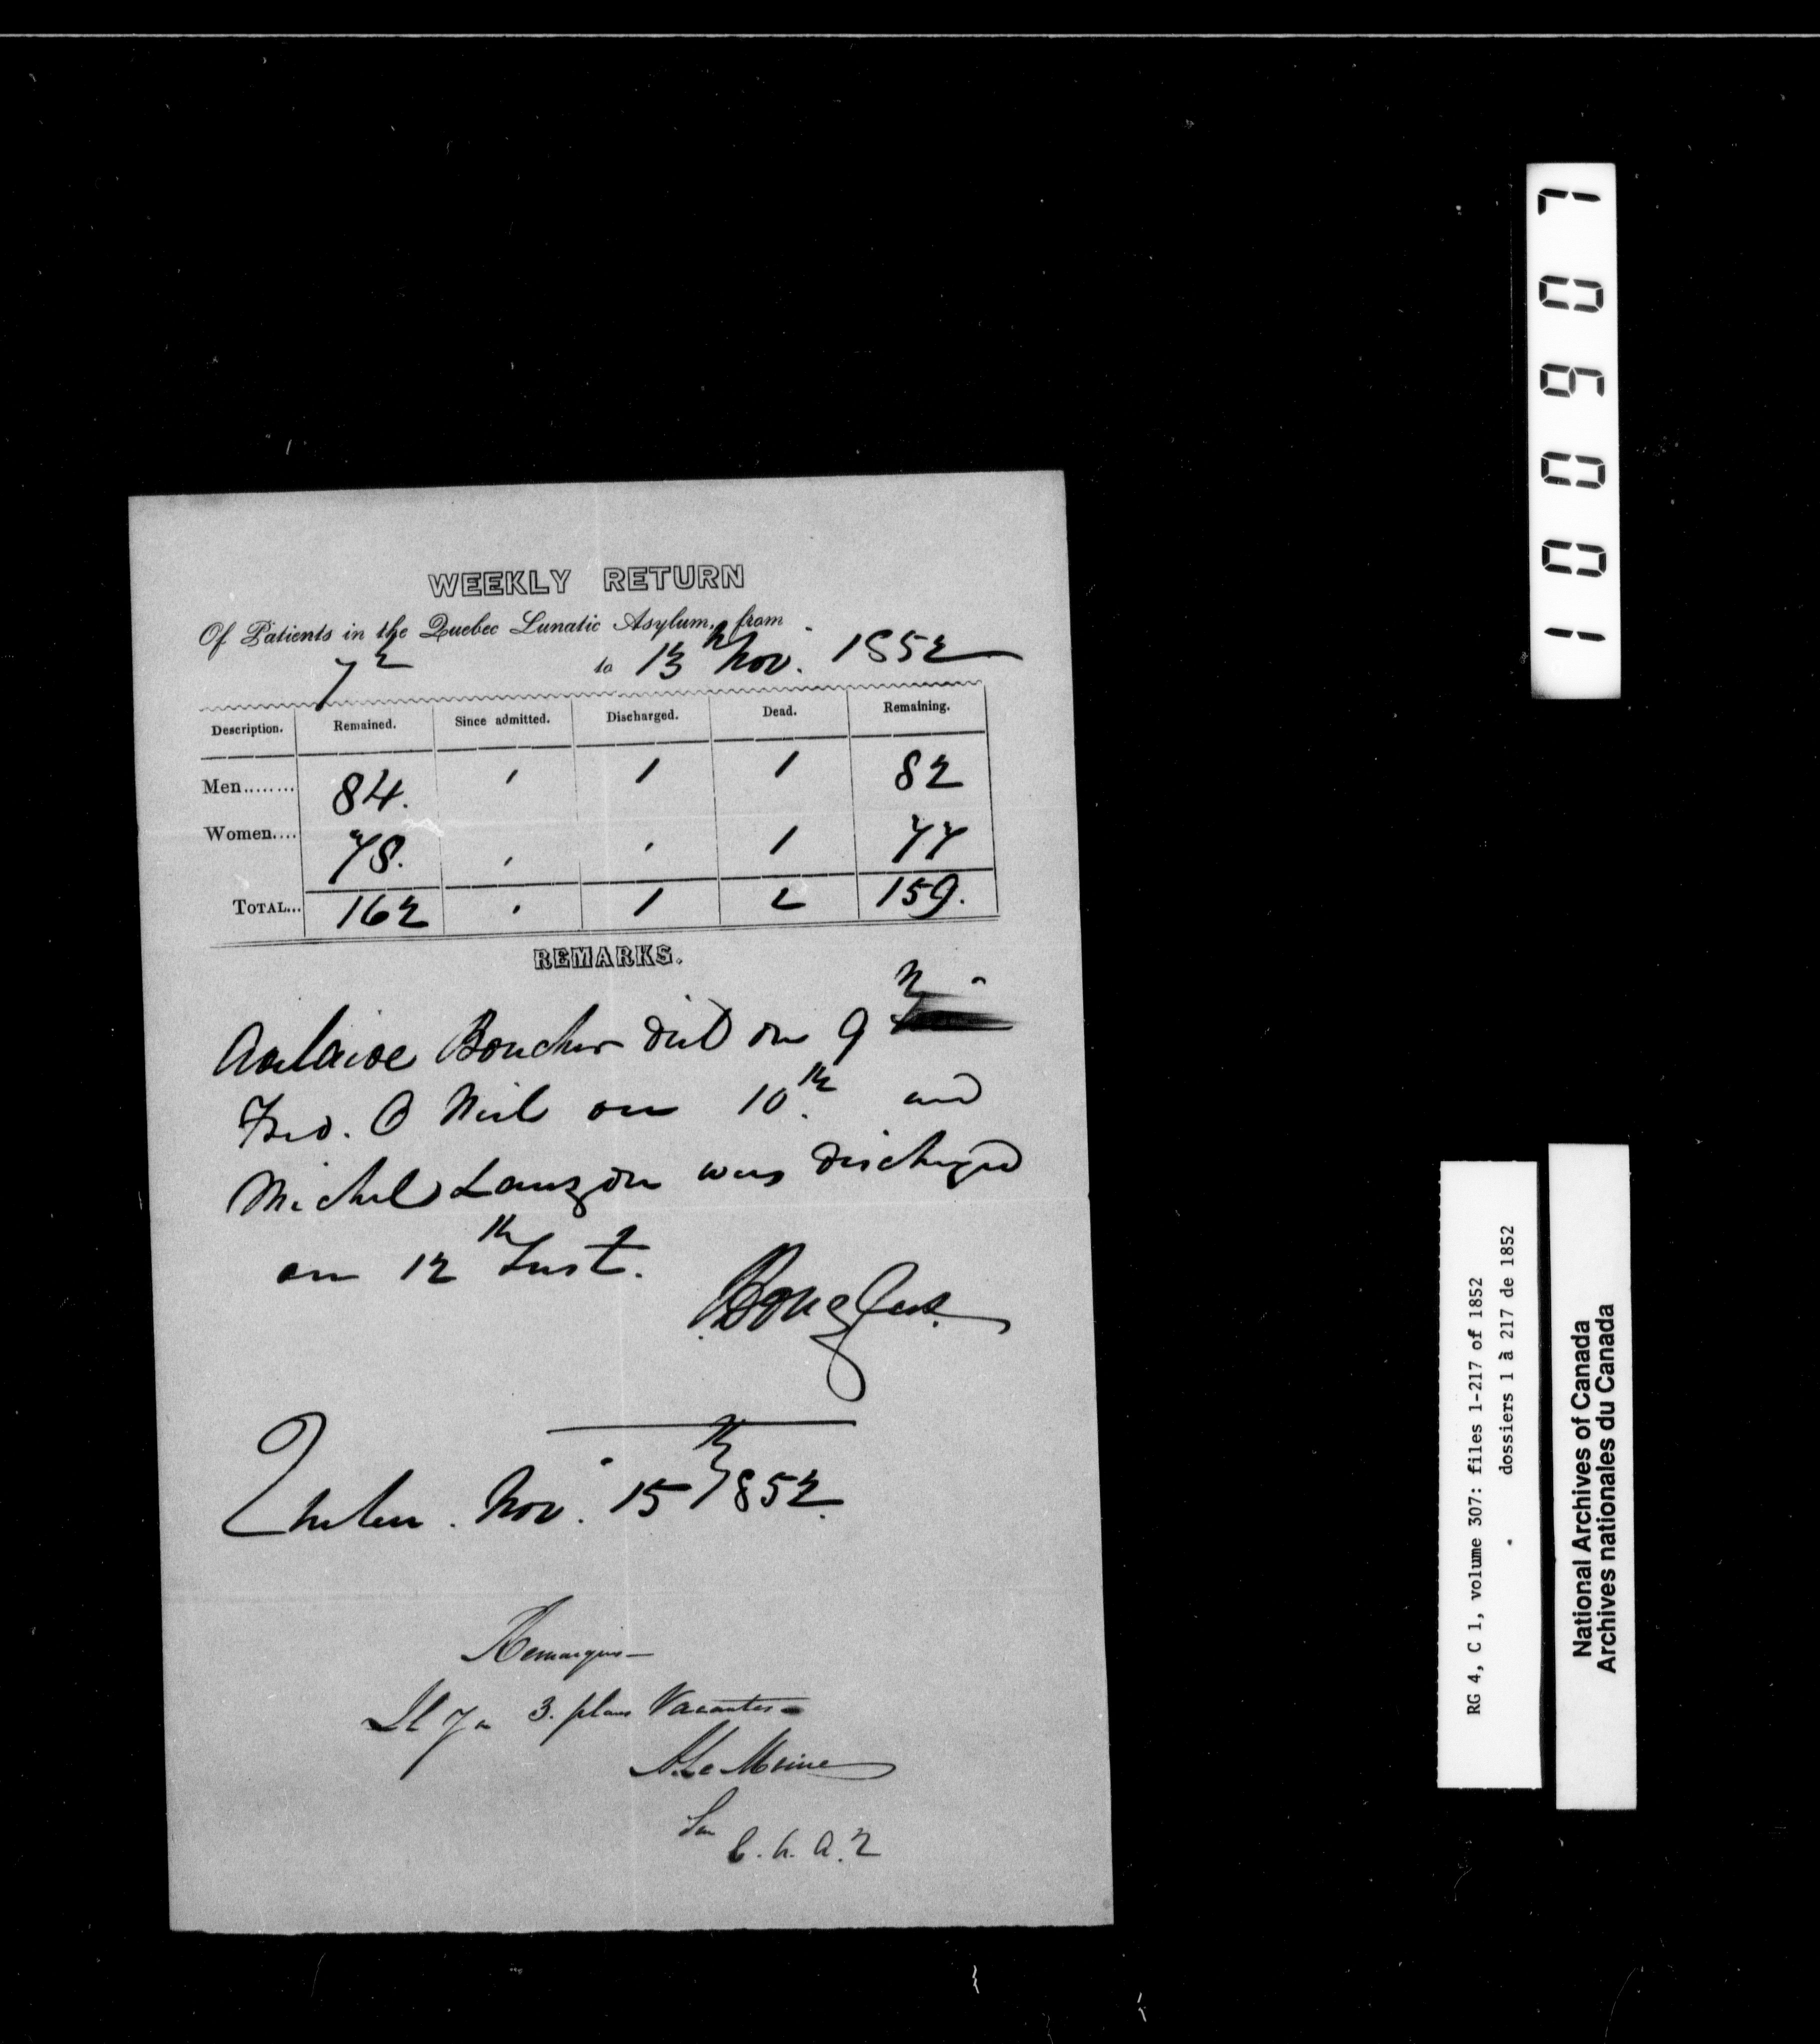 WEEKLY RETURN
Of Patients in the Quebec Lunatic Asylum, from
7th to 13th Nov. 1852
Description. Remained. Since admitted. Discharged. Dead. Remaining.
Men........ 84. ' 1 1 82
Women.... 78. ' ' 1 77
TOTAL... 162 ' 1 2 159.
REMARKS.
Adelaide Boucher died on 9th
Fred. O Neil on 10th and
Michel Lauzon was discharged
on 12th Inst.
Douglas.
Quebec. Nov. 15th 1852.
Remarques
Il y a 3. places Vacantes
A. Le Moine
Sec
C. L. A. Q
100907
RG 4, C 1, volume 307: files 1-217 of 1852
dossiers 1 à 217 de 1852
National Archives of Canada
Archives nationales du Canada